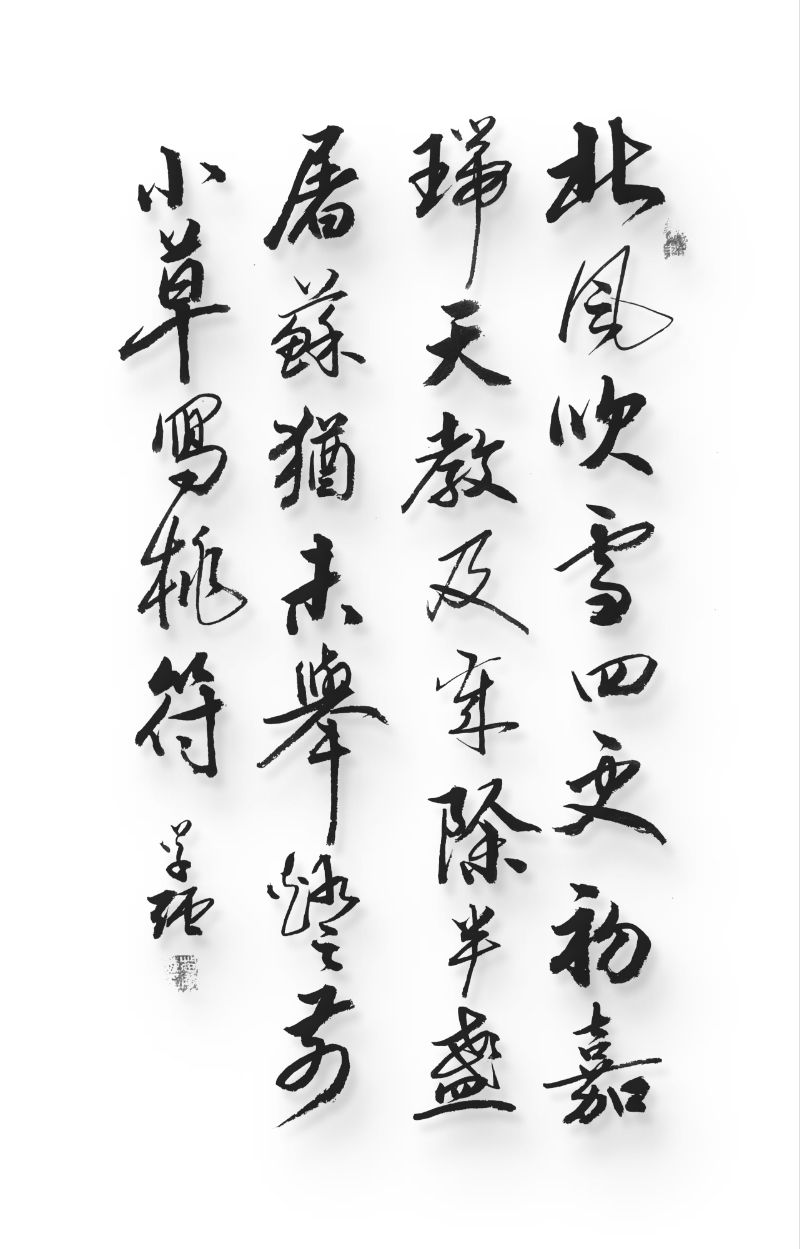 北風吹雪四更初嘉
瑞天教及歲除半盞
屠蘇猶未舉燈前
小草寫桃符
学強